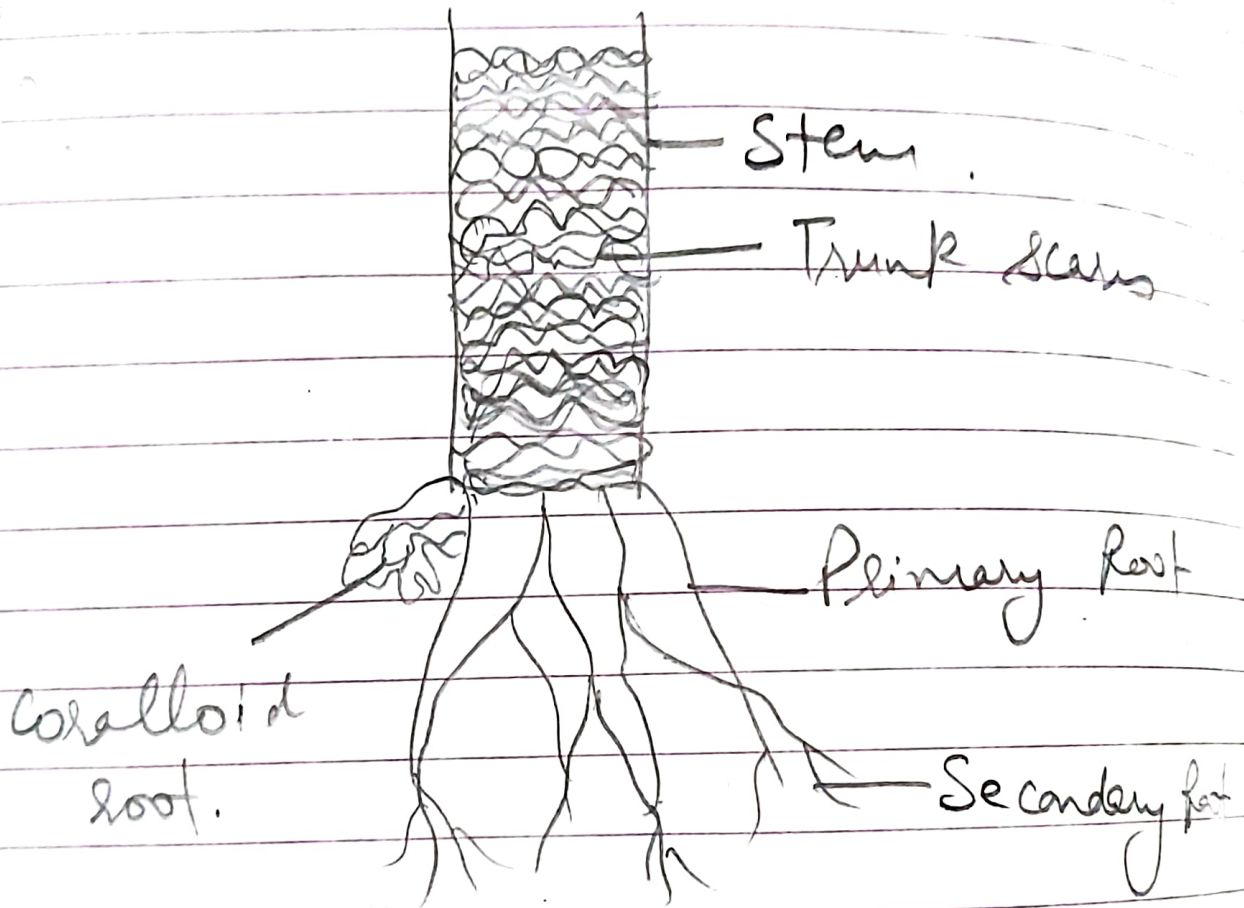 Stem
Trunk scars
Primary Root
Coralloid
root.
Secondary Root